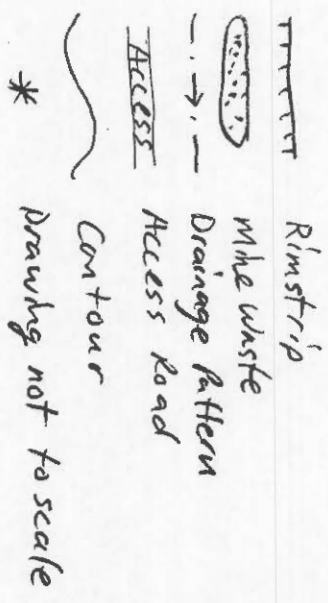 Rimstrip
Mine Waste
Drainage Pattern
Access Access Road
Contour
* Drawing not to scale